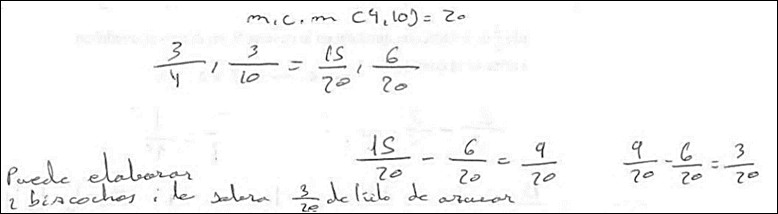 m.c.m (4,10) = 20
3/4, 3/10 = 15/20, 6/20
15/20 - 6/20 = 9/20    9/20 - 6/20 = 3/20
Puede elaborar
2 biscochos i le sobra 3/20 de kilo de azucar